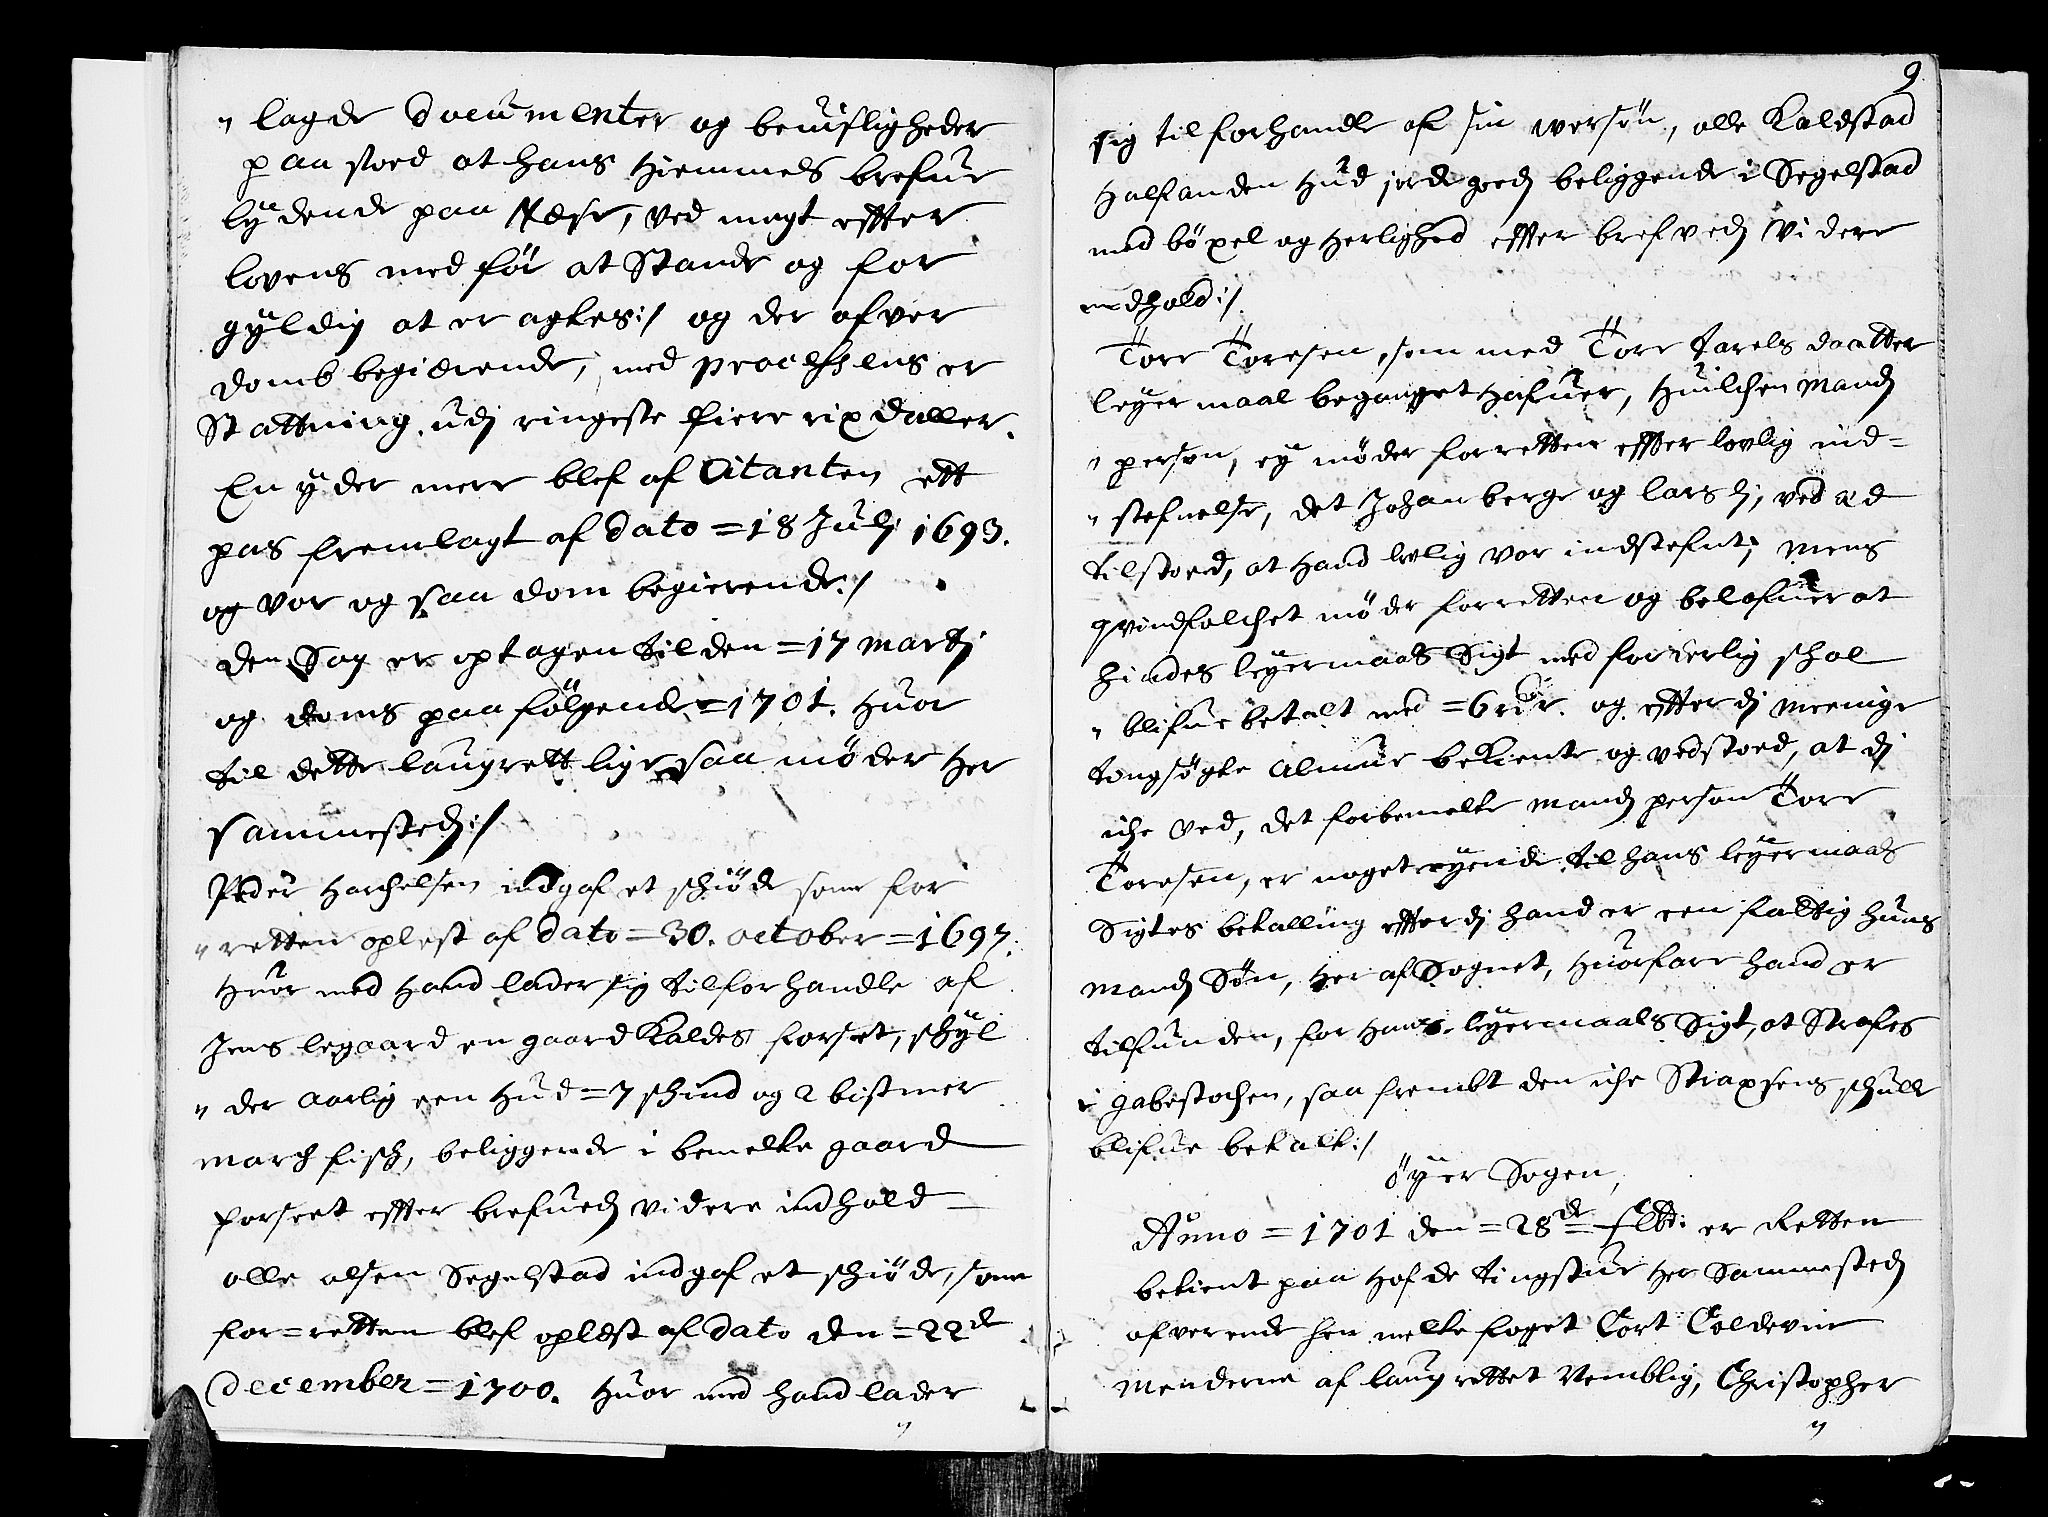 " lagde documenter og beuisligheder
paa stoed at hans Hiemmels brefue
lydende paa Næse, ved magt effter
lovens med før at Stande og for
gyldig at er agtes:/ og der ofver
domb begierende, med processens er
Stattning, udj ringeste fiere rixdaller.
En yder mere blef af Citanten ett
pas fremlagt af dato = 18 Julj 1693.
og var og saa dom begierende:/
den Sag er optagen til den = 17 martj
og doms paafølgende = 1701. Huor
til dette laugrett lige saa møder Her
sammestedz:/
Peder Harchelsen indgaf et schiøde som for
" retten oplest af dato = 30. october = 1697.
Huor med Hand lader sig tilforhandle af
Jens legaard en gaard Kaldes forset, schyl
" der aarlig een Hud = 7 schind og 2 bismer
march fisch, beliggende i bemelte gaard
forseet effter brefuedz videre indhold
olle olsen Segelstad indgaf et schiøde, som
for = retten blef oplæst af dato den = 22de
december = 1700. Huor med hand lader
9
sig tilforhandle af sin versøn, olle Kaldstad
Halfanden Hud jorde goedz beliggende i Segelstad
med bøxel og Herlighed effter brefvedz Videre
indhold:/
Tore Toresen, som med Tore Jarels daatter
leyermaal beganget Hafuer, Huilchen Mandz
" person, ey møder for retten effter lovlig ind=
" stefnelse, det Johan berge og lars li, ved æd
tilstoed, at Hand lovlig var indstefnt; Mens
qvindfolchet møder for retten og belofuer at
Hindes leyermaals Sigt med forderlig schal
" blifue betalt med = 6 rdr. og effterdj meenige
tingsøgte Almue bekiente og vedstoed, at dj
iche ved, det forbemelte Mandz person Tore
Toresen, er noget eyende til hans leyermaals
Sigtes betalling effterdj hand er een fattig Huus
mandz Søn, Her af Sognet, Huorfore hand er
tilfunden, for Hans leyermaals Sigt, at Strafes
i gabestochen, saa frembt den iche Straxsens schulle
blifue betalt:/
öyer Sogen,
Anno = 1701 den = 28de febr: er Retten
betient paa Hofde tingstue Her Sammestedz
ofverende Her melte foget Cort Coldevin
Menderne af laugrettet Nemblig, Christopher